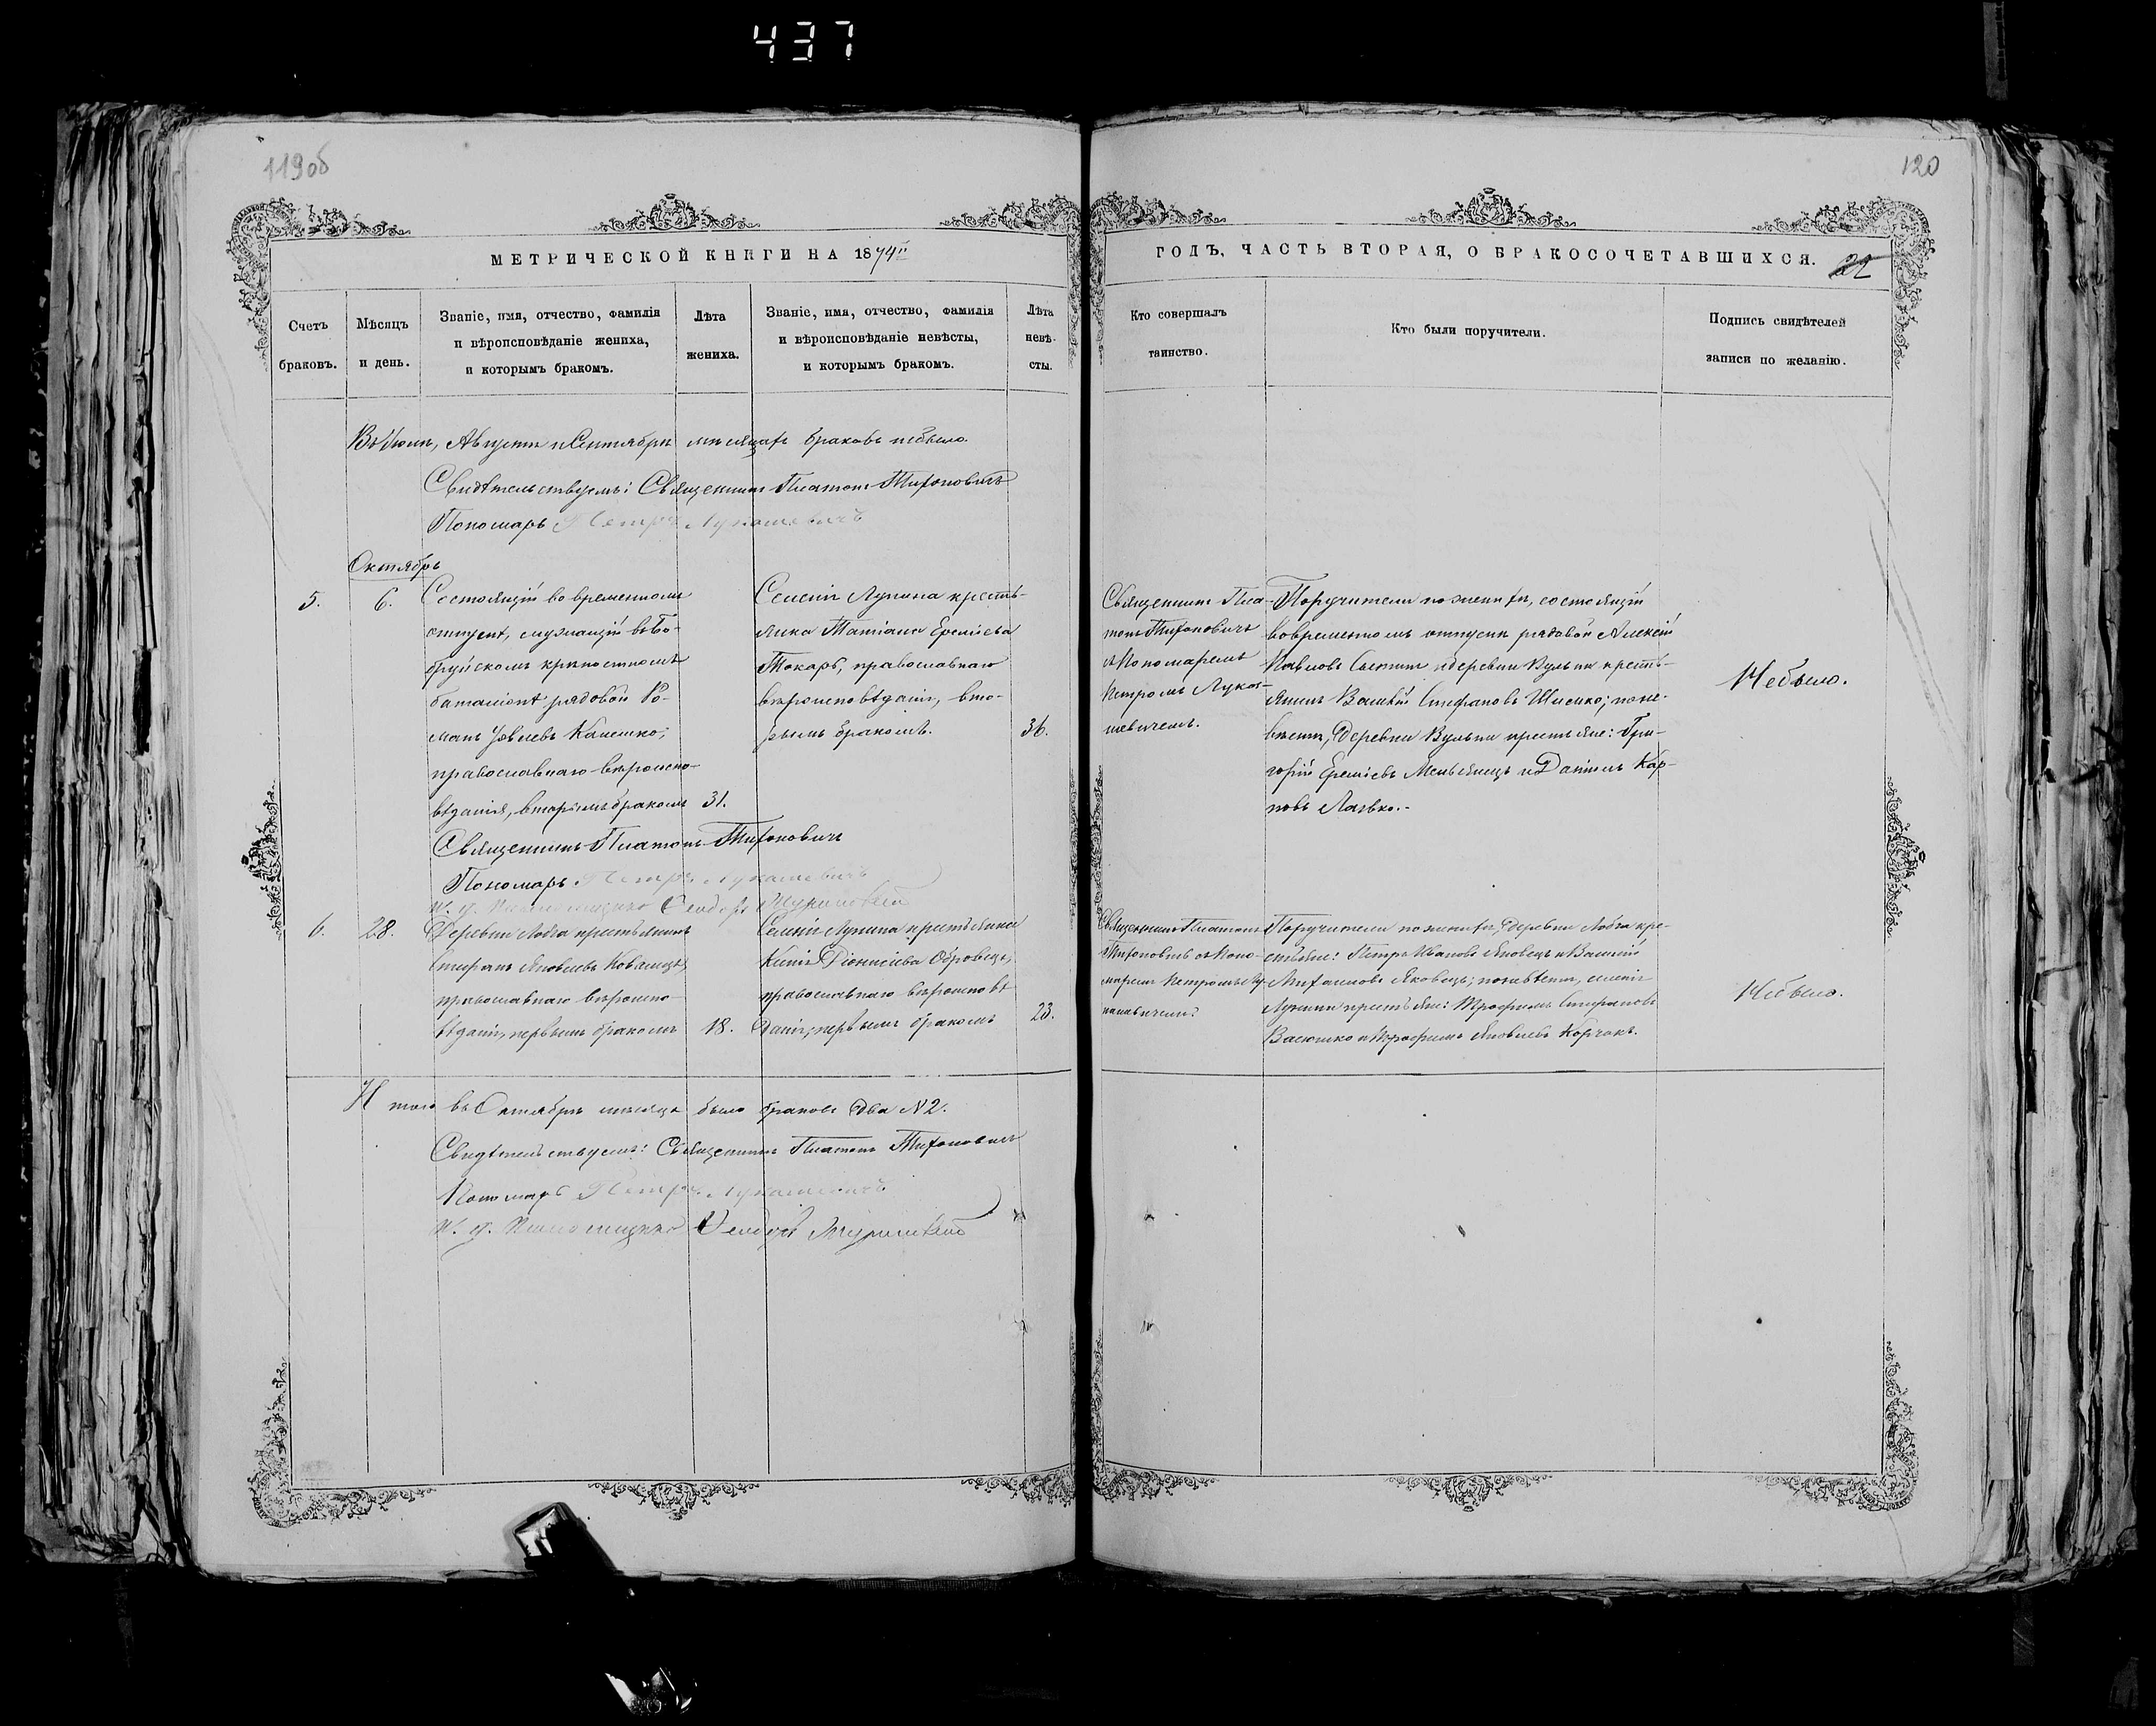 437
119об
120
МЕТРИЧЕСКОЙ КНИГИ НА 1874й
ГОДЪ, ЧАСТЬ ВТОРАЯ, О БРАКОСОЧЕТАВШИХСЯ.
22
Счетъ
браковъ.
Мѣсяцъ
и день.
Званіе, имя, отчество, фамилія
и вѣроисповѣданіе жениха,
и которымъ бракомъ.
Лѣта
жениха.
Званіе, имя, отчество, фамилія
и вѣроисповѣданіе невѣсты,
и которымъ бракомъ.
Лѣта
невѣ-
сты.
Кто совершалъ
таинство.
Кто были поручители.
Подпись свидѣтелей
записи по желанію.
Августѣ и Сентябрѣ мѣсяцахъ браковъ небыло.
Свидѣтельствуемъ: Священникъ Платонъ Тихоновичъ
Пономарь Петръ Лукашевичъ
Октябрь
5.
6.
Состоящій во временномъ
отпускѣ, служащій въ Бо-
бруйскомъ крѣпостномъ
баталіонѣ рядовой Ро-
манъ Калешко;
православнаго вѣроиспо-
вѣданія, вторымъ бракомъ
31.
Селенія Лунина кресть-
янка Татіана Ереміева
Токарь, православнаго
вѣроисповѣданія, вто-
рымъ бракомъ.
36.
Священникъ Пла-
тонъ Тихоновичъ
съ Пономаремъ
Петромъ Лука-
шевичемъ.
Поручители по женихѣ, состоящій
во временномъ отпускѣ рядовой Алексѣй
Павловъ и деревни Вульки кресть-
янинъ Василій Стефановъ Шисько; по не-
вѣстѣ, деревни Вульки крестьяне: Гри-
горій Ереміевъ и Даніилъ Кар-
повъ Лазько.
Небыло.
Священникъ Платонъ Тихоновичъ
Пономарь Петръ Лукашевичъ
И. д. Псаломщика Ѳеодоръ
6.
28.
Деревни Лобча крестьянинъ
Стефанъ Яковлевъ Ковалецъ,
православнаго вѣроиспо-
вѣданія, первымъ бракомъ
18.
Селенія Лунина крестьянка
Діонисіева Обровецъ,
православнаго вѣроисповѣ
данія, первымъ бракомъ
23.
Священникъ Платонъ
Тихоновичъ съ Поно-
маремъ Петромъ Лу-
кашевичемъ
Поручители по женихѣ, деревни Лобча кре-
стьяне: Петръ Ивановъ Яковецъ и Василій
Яковецъ; по невѣстѣ, селенія
Лунина крестьяне: Трофимъ Стефановъ
Васюшко и Трофимъ Яковлевъ Корчакъ.
Небыло.
Итого въ Октябрѣ мѣсяцѣ было браковъ два N 2.
Свидѣтельствуемъ: Священникъ Платонъ Тихоновичъ
Пономарь Петръ Лукашевичъ
И. д. Псаломщика Ѳеодоръ